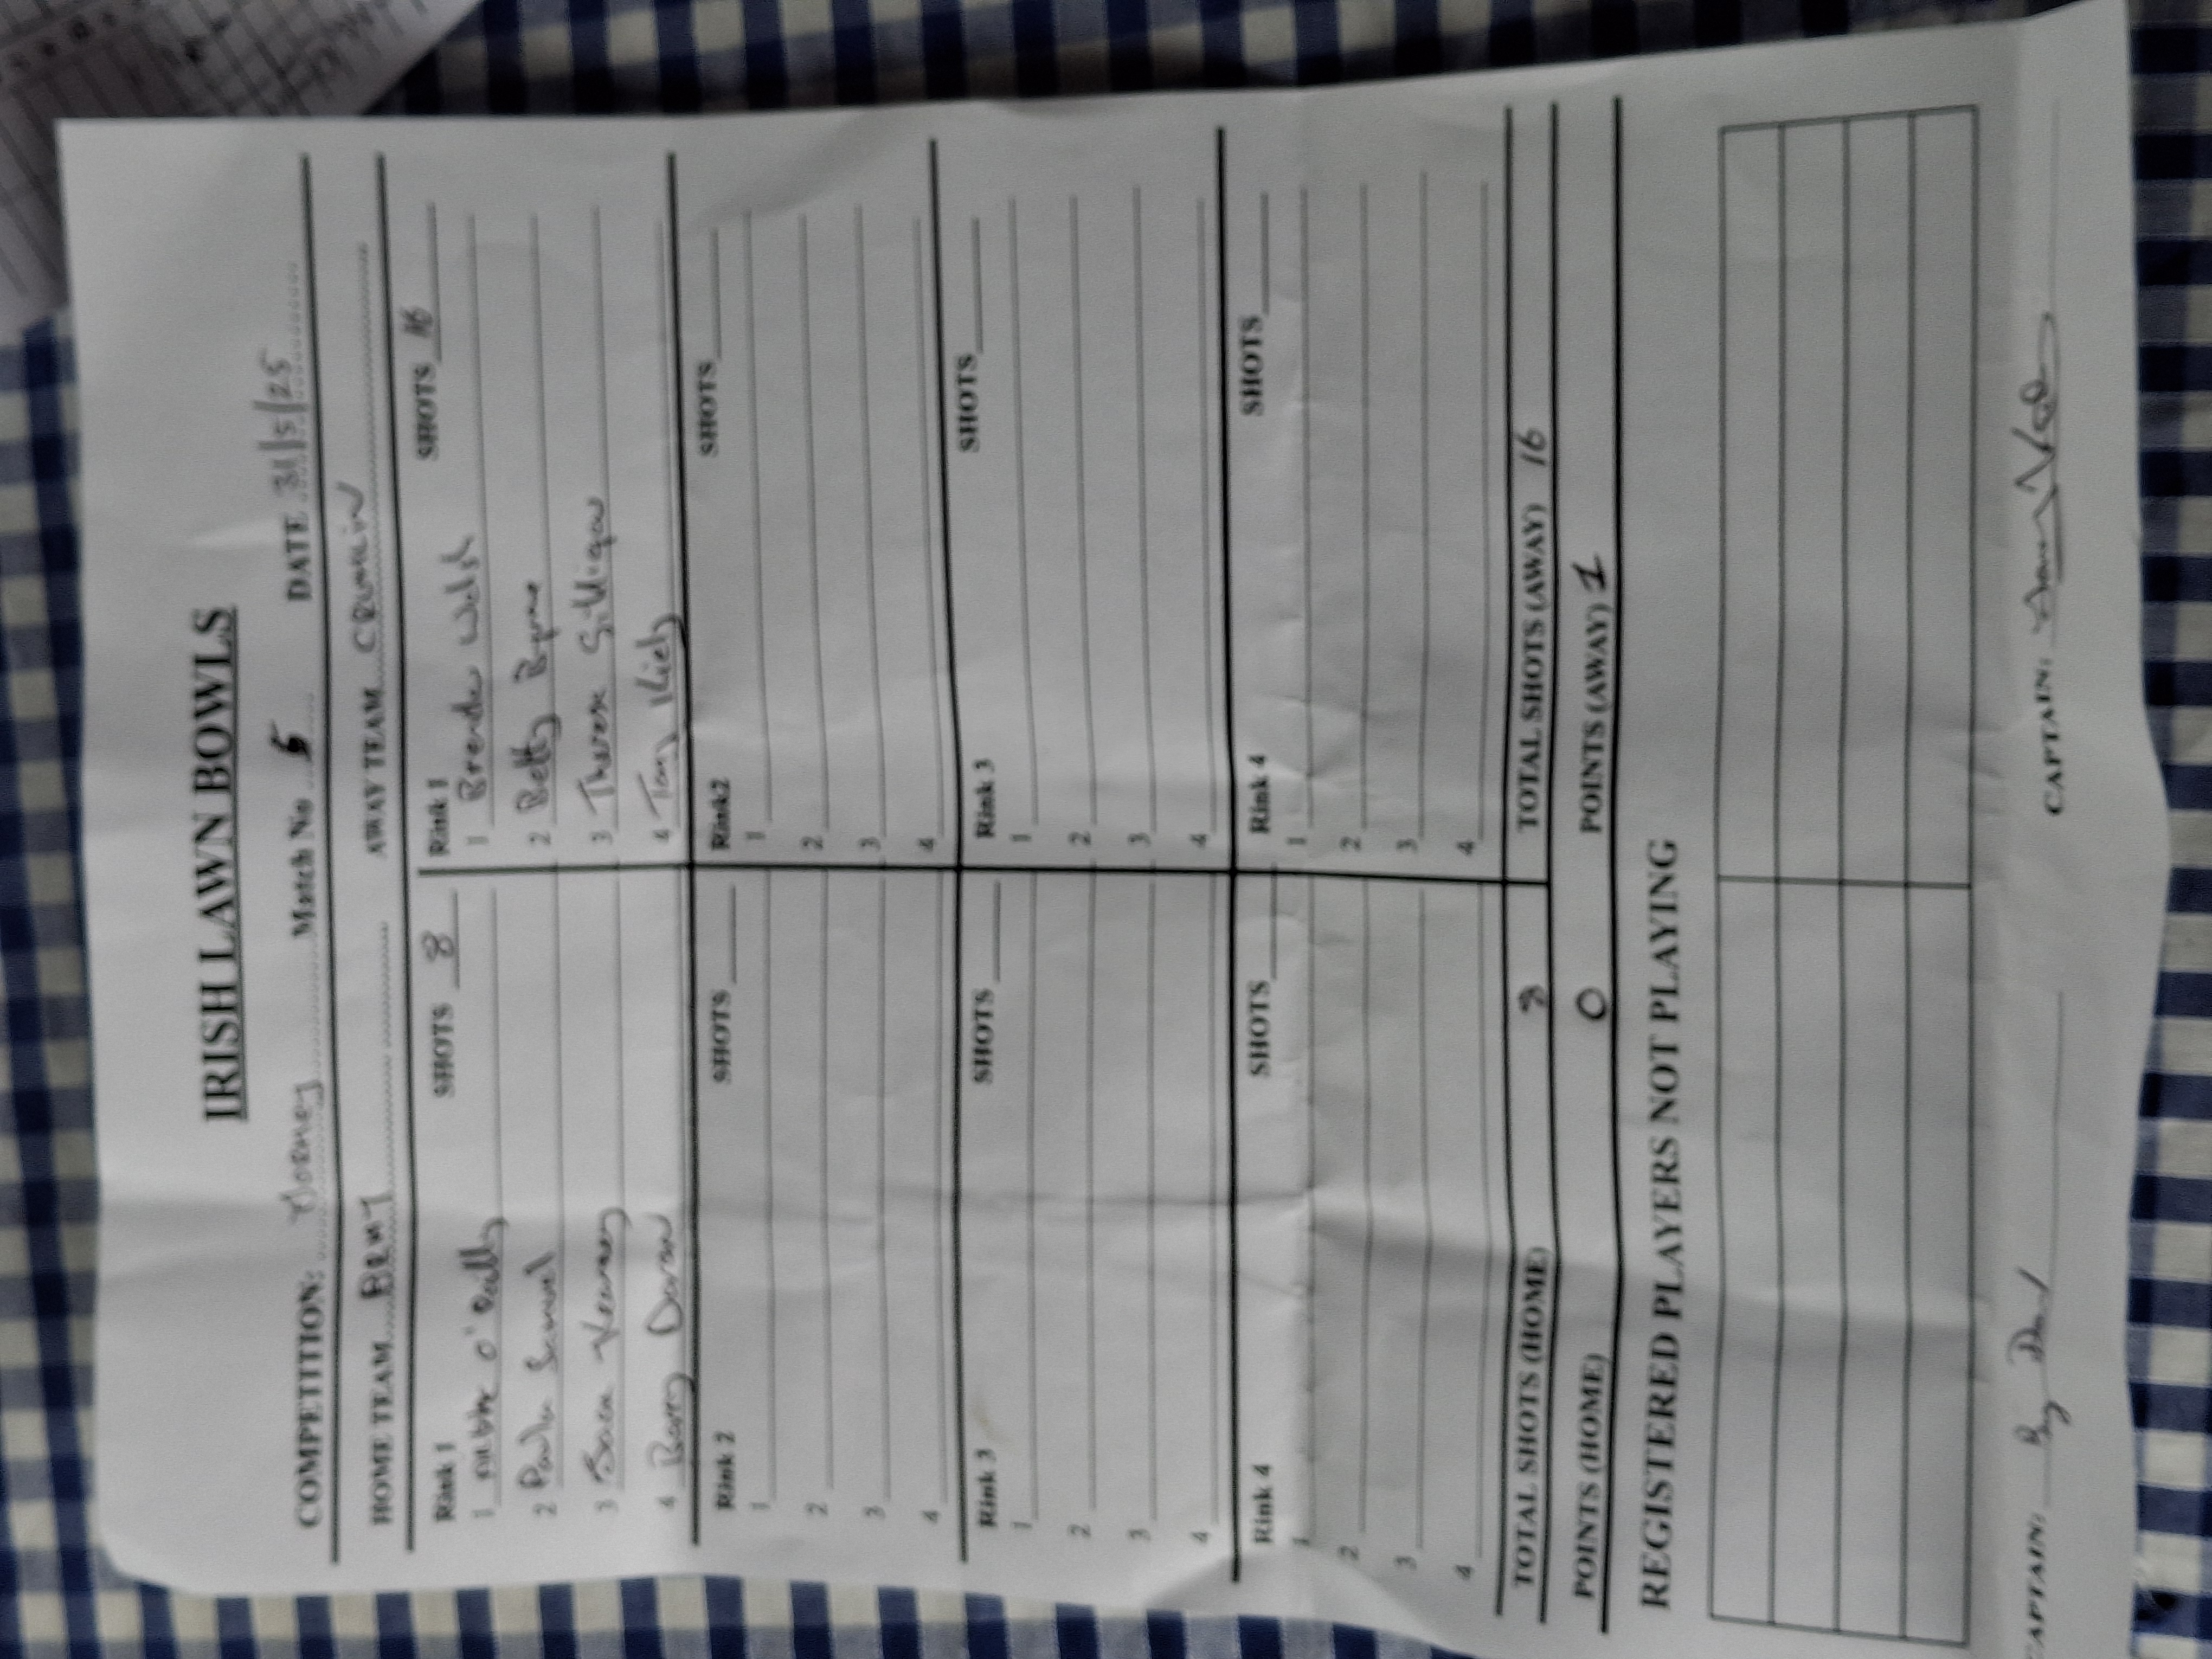 IRISH LAWN BOWLS
COMPETITION: Match No 5 DATE 31/5/25
HOME TEAM AWAY TEAM CRUMLIN
Rink 1 SHOTS 8
1 O'Reilly
2 Paula Samuel
3 Kearney
4 Barry Doran
Rink 1 SHOTS 16
1 Brenda Walsh
2 Betty Byrne
3 Therese Gilligan
4 Tony Kiely
Rink 2 SHOTS
1
2
3
4
Rink2 SHOTS
1
2
3
4
Rink 3 SHOTS
1
2
3
4
Rink 3 SHOTS
1
2
3
4
Rink 4 SHOTS
1
2
3
4
Rink 4 SHOTS
1
2
3
4
TOTAL SHOTS (HOME) 8 TOTAL SHOTS (AWAY) 16
POINTS (HOME) 0 POINTS (AWAY) 1
REGISTERED PLAYERS NOT PLAYING
CAPTAIN: CAPTAIN: